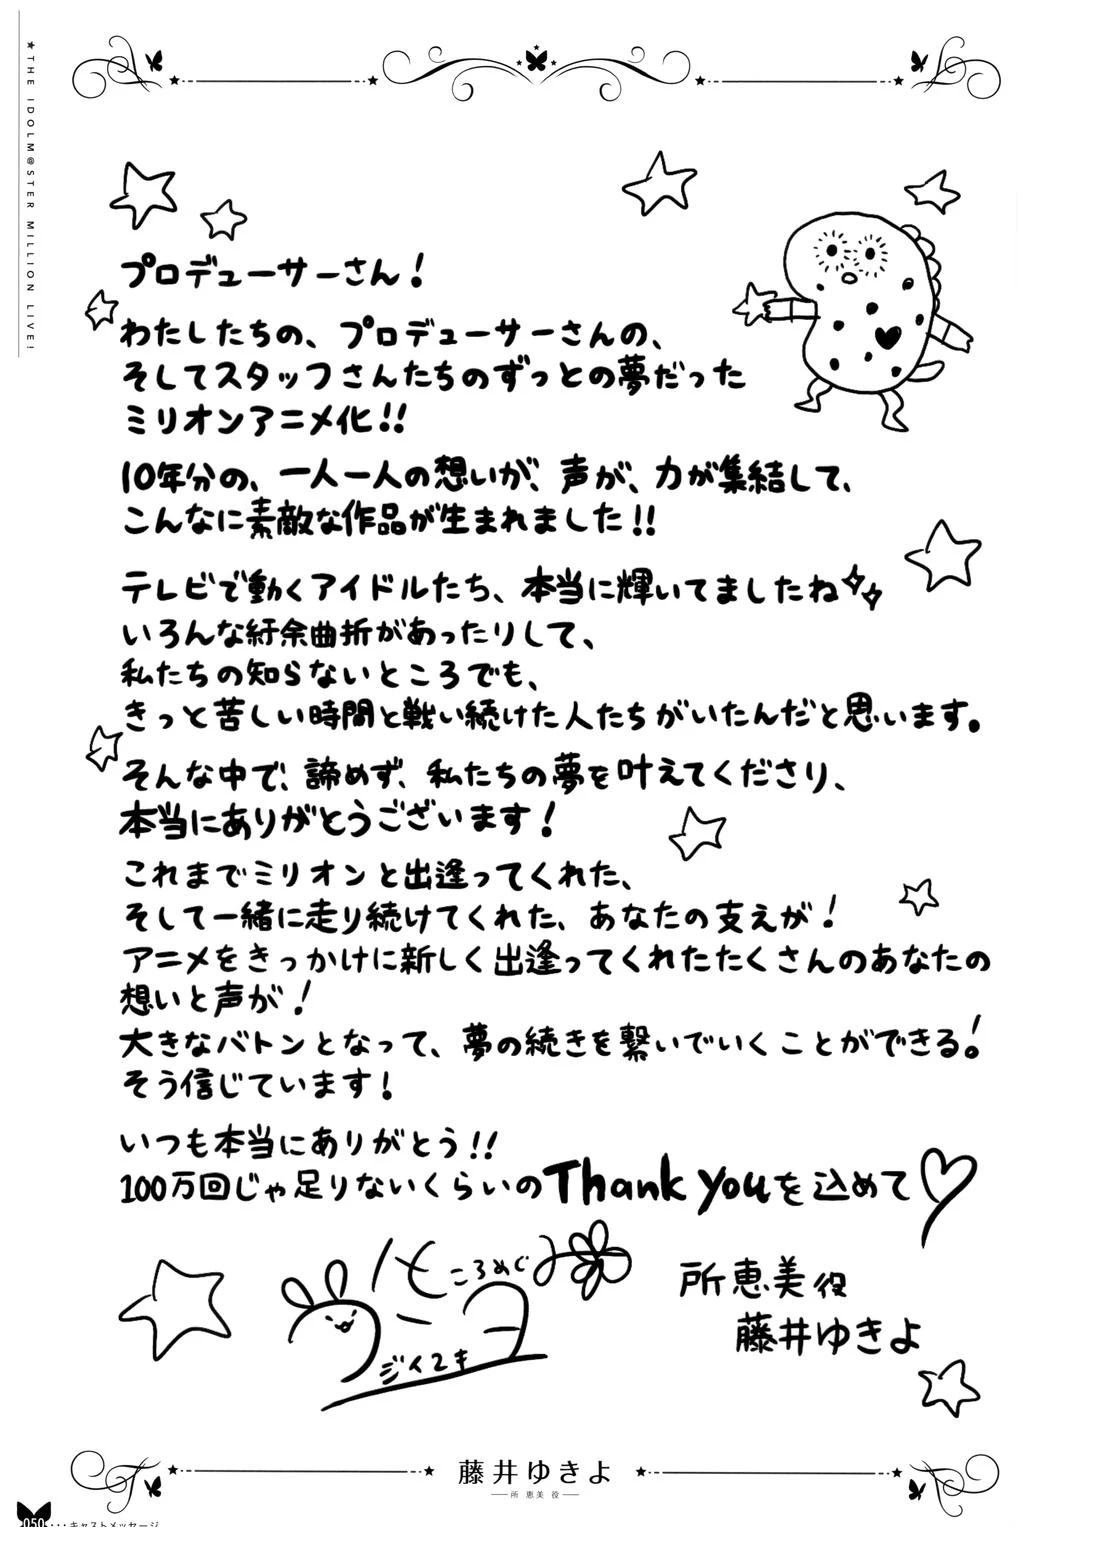 ★THE IDOLM@STER MILLION LIVE!
プロデューサーさん!
わたしたちの、プロデューサーさんの、
そしてスタッフさんたちのずっとの夢だった
ミリオンアニメ化!!
10年分の、一人一人の想いが、声が、力が集結して、
こんなに素敵な作品が生まれました!!
テレビで動くアイドルたち、本当に輝いてましたね
いろんな紆余曲折があったりして、
私たちの知らないところでも、
きっと苦しい時間と戦い続けた人たちがいたんだと思います。
そんな中で、諦めず、私たちの夢を叶えてくださり、
本当にありがとうございます!
これまでミリオンと出逢ってくれた、
そして一緒に走り続けてくれた、あなたの支えが!
アニメをきっかけに新しく出逢ってくれたたくさんのあなたの
想いと声が!
大きなバトンとなって、夢の続きを繋いでいくことができる!
そう信じています!
いつも本当にありがとう!!
100万回じゃ足りないくらいのThank youを込めて
ころめぐ
所恵美役
藤井ゆきよ
藤井ゆきよ
所 恵美 役
050・・・キャストメッセージ